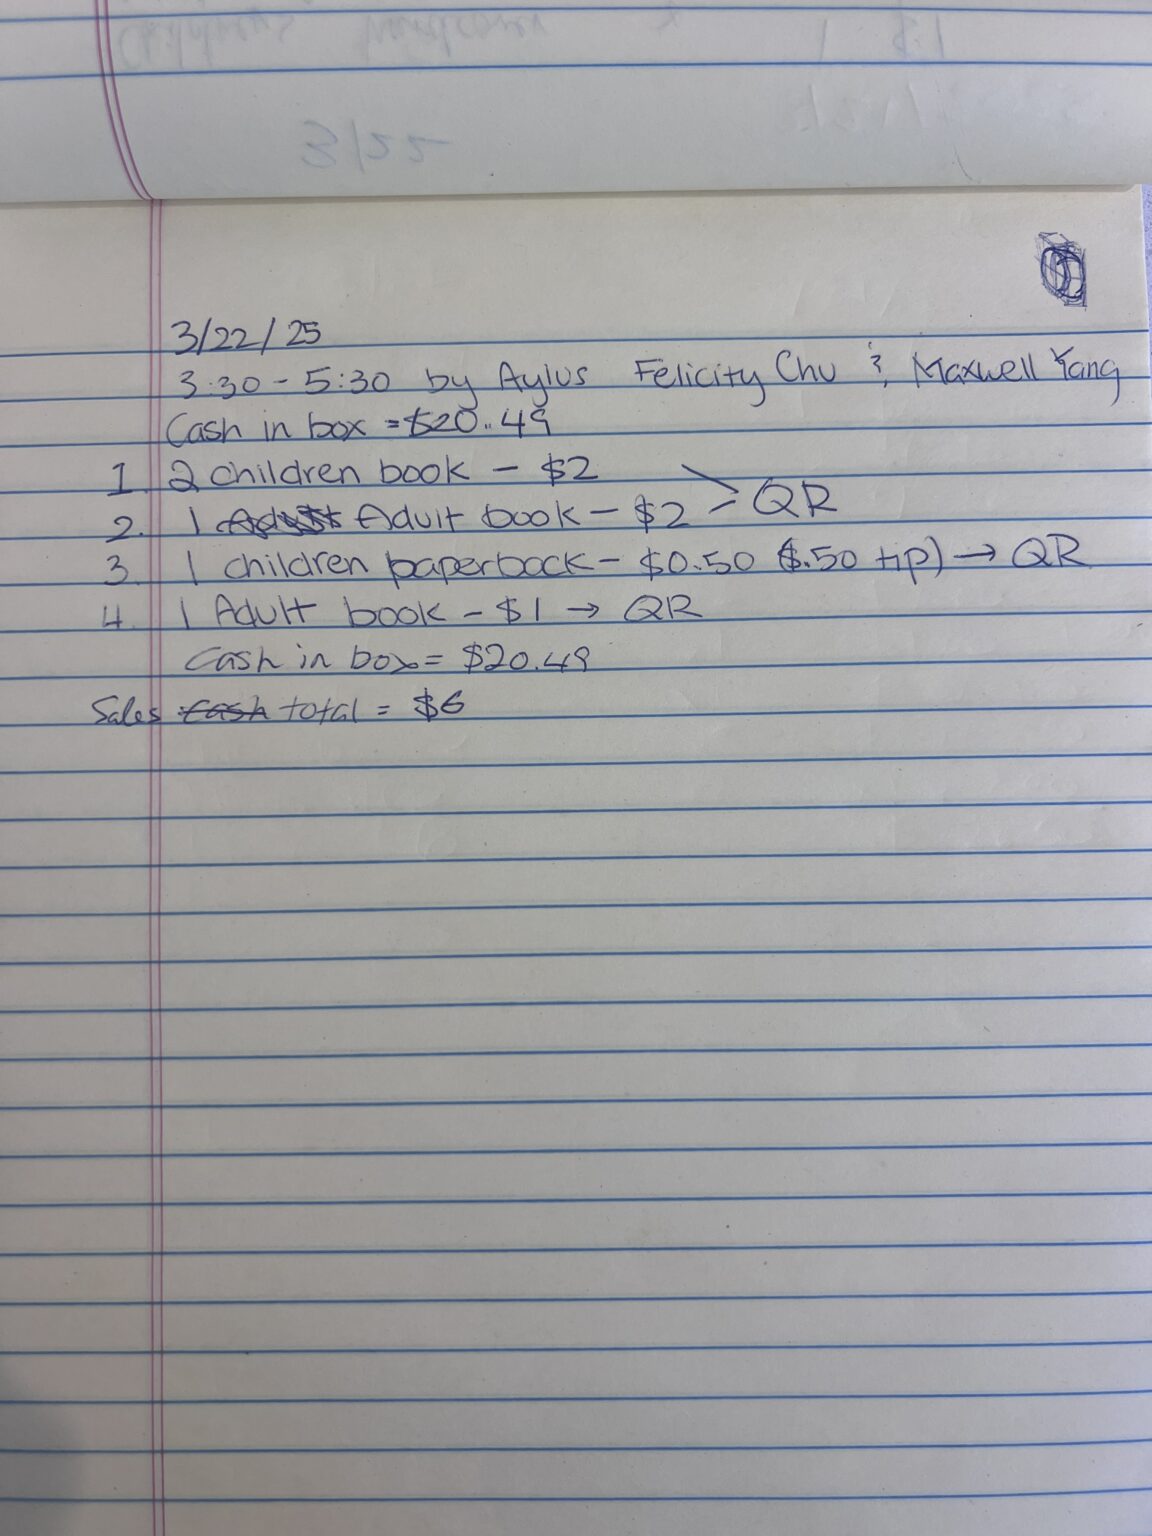 3/22
3/22/25
3:30-5:30 by Aylus Felicity Chu & Maxwell Yang
Cash in box = $20.49
1. 2 children book - $2
2. 1 Adult book - $2 > QR
3. 1 children paperback - $0.50 ($.50 tip) → QR
4. 1 Adult book - $1 → QR
Cash in box = $20.49
Sales cash total = $6